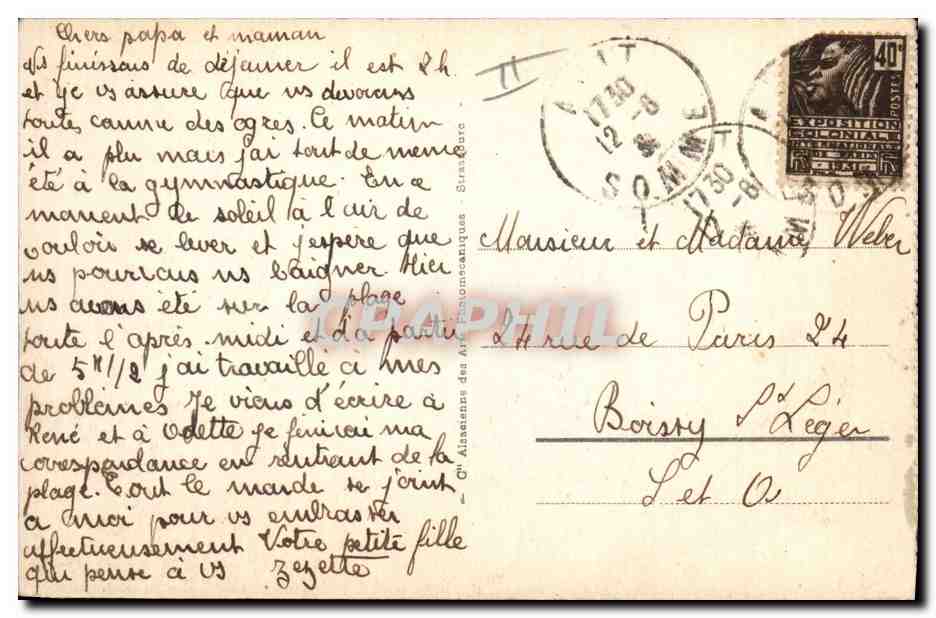 Chers papa et maman
Ns finissons de déjeuner il est 2 h.
et je vs assure que ns devorons
toutes comme des ogres. Ce matin
il a plu mais j'ai tout de meme
été à la gymnastique. En ce
moment le soleil à l'air de
vouloir se lever et j'espère que
ns pourrons ns baigner. Hier
ns avons été sur la plage
toute l'après midi et d'a partir
de 5H1/2 j'ai travaillé à mes
problèmes Je viens d'écrire à
René et à Odette Je finirai ma
correspondance en rentrant de la
plage. Tout le monde se joint
a moi pour vs embrasser
affectueusement Votre petite fille
qui pense à vs Zezette
Cie Alsacienne des Arts Photomécaniques - Strasbourg
CPAPHIL
II
AULT
1730
12 -8
SOMME
1730
12 -8
SOMME
40c
POSTES
EXPOSITION
COLONIALE
INTERNATIONALE
PARIS
1931
RF
Monsieur et Madame Weber
24 rue de Paris 24
Boissy St Léger
S et O